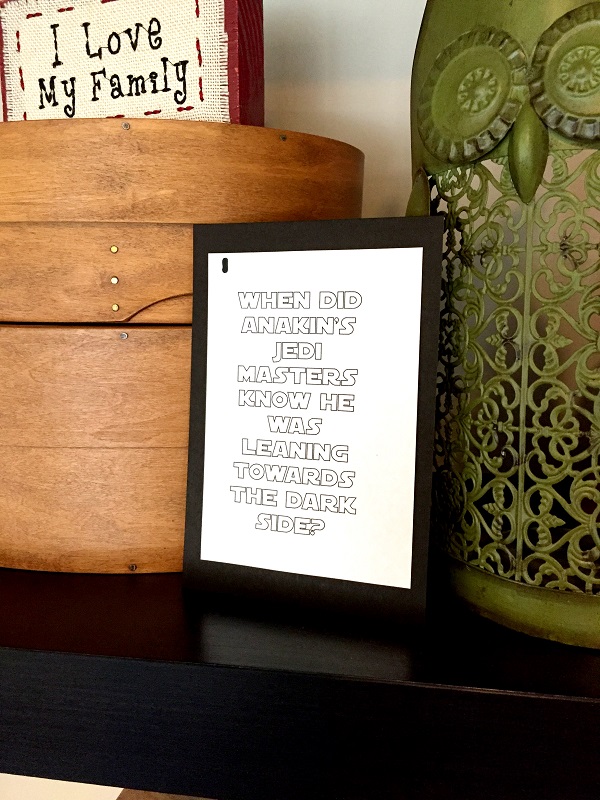 I Love
My Family
WHEN DID
ANAKIN'S
JEDI
MASTERS
KNOW HE
WAS
LEANING
TOWARDS
THE DARK
SIDE?